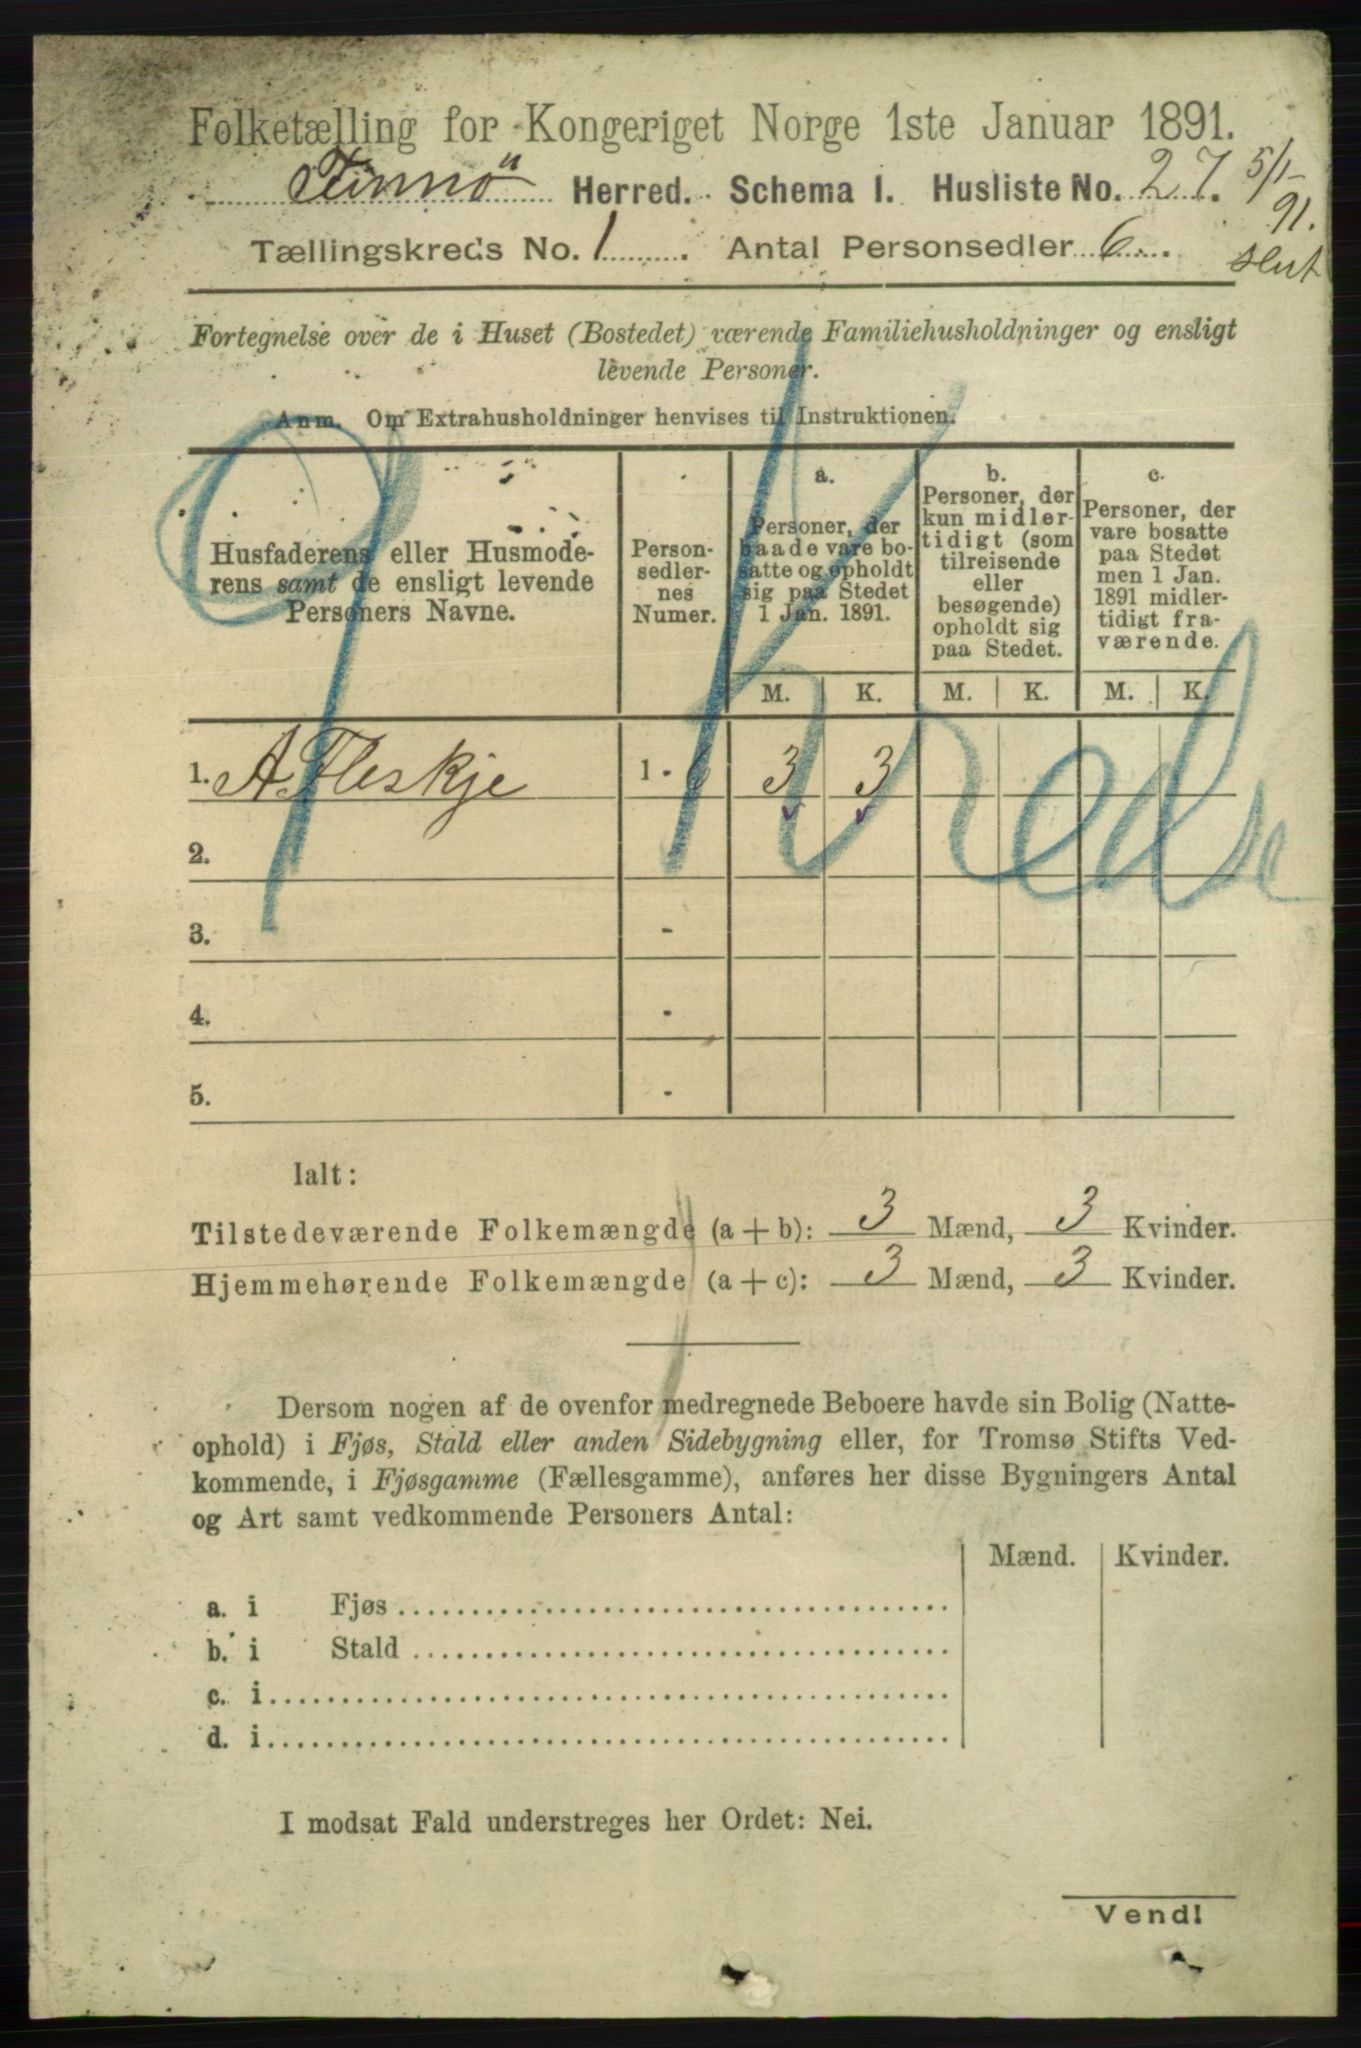 Folketælling for Kongeriget Norge 1ste Januar 1891.
Finnö Herred. Schema I. Husliste No. 27. 5/1-
91.
Tællingskreds No. 1. Antal Personsedler 6.
slut
Fortegnelse over de i Huset (Bostedet) værende Familiehusholdninger og ensligt
levende Personer.
Anm. Om Extrahusholdninger henvises til Instruktionen.
Husfaderens eller Husmode-
rens samt de ensligt levende
Personers Navne.
Person-
sedler-
nes
Numer.
a.
Personer, der
baade vare bo-
satte og opholdt
sig paa Stedet
1 Jan. 1891.
b.
Personer, der
kun midler-
tidigt (som
tilreisende
eller
besøgende)
opholdt sig
paa Stedet.
c.
Personer, der
vare bosatte
paa Stedet
men 1 Jan.
1891 midler-
tidigt fra-
værende.
M. K. M. K. M. K.
1. A. Fleskje 1 - 6 3 3
Kreds
2.
3. -
4. -
5. -
Ialt:
Tilstedeværende Folkemængde (a + b): 3 Mænd, 3 Kvinder.
Hjemmehørende Folkemængde (a + c): 3 Mænd, 3 Kvinder.
Dersom nogen af de ovenfor medregnede Beboere havde sin Bolig (Natte-
ophold) i Fjøs, Stald eller anden Sidebygning eller, for Tromsø Stifts Ved-
kommende, i Fjøsgamme (Fællesgamme), anføres her disse Bygningers Antal
og Art samt vedkommende Personers Antal:
Mænd. Kvinder.
a. i Fjøs
b. i Stald
c. i
d. i
I modsat Fald understreges her Ordet: Nei.
Vend!